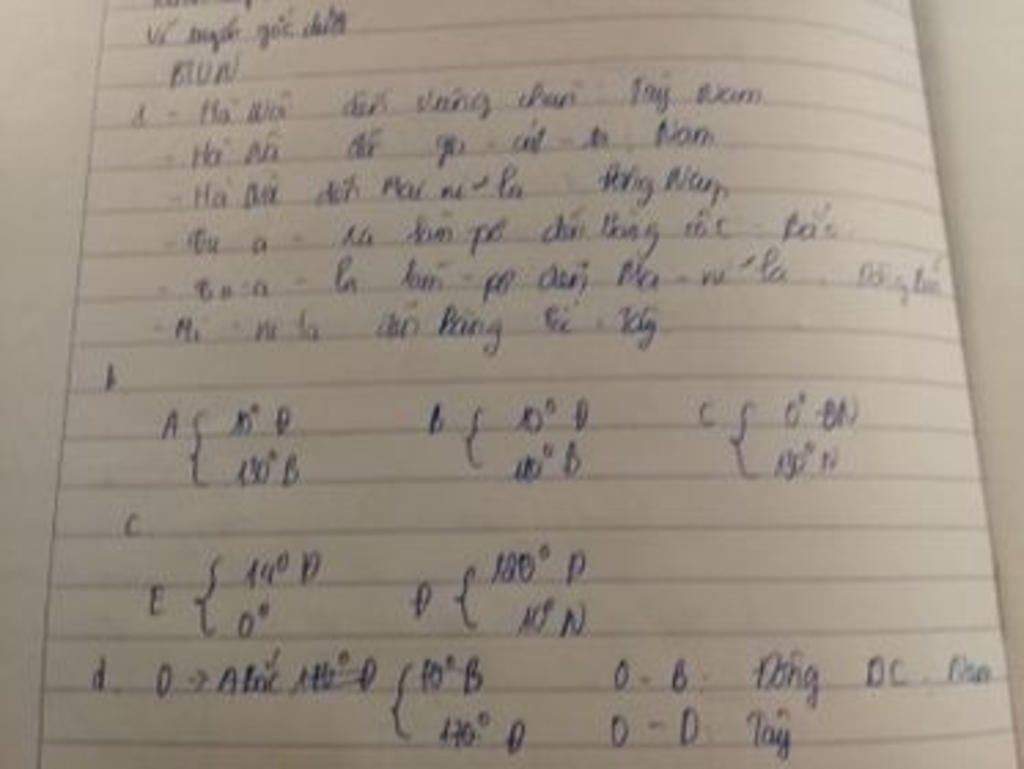 vĩ tuyến gốc dưới
BTVN
- Hà Nội đến Viêng chăn Tây Nam
- Hà Nội đến gia - các - ta Nam
- Hà Nội đến Ma ni - la Đông Nam
- Cu a - la lăm pơ đến Băng cốc - Bắc
- Cu - a - la lăm - pơ đến Ma - ni - la Đông Bắc
- Ma - ni la đến Băng cốc Tây
b
A { 10° Đ B { 10° Đ C { 0°
130° B 110° B 130° N
c
E { 140° Đ Đ { Đ
0° 10° N
d O → A Bắc { 10° B O - B Đông OC Nam
Đ O - D Tây